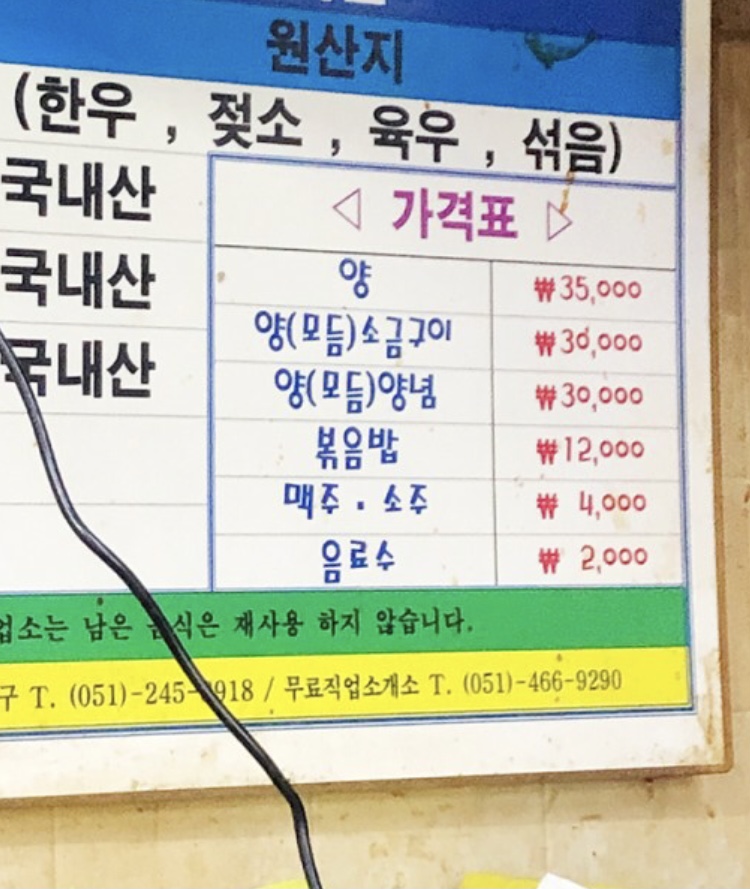 원산지
(한우 , 젖소 , 육우 , 섞음)
국내산
국내산
국내산
◁ 가격표 ▷
양 ₩35,000
양(모듬)소금구이 ₩30,000
양(모듬)양념 ₩30,000
볶음밥 ₩12,000
맥주 . 소주 ₩ 4,000
음료수 ₩ 2,000
업소는 남은 음식은 재사용 하지 않습니다.
구 T. (051)-245- 918 / 무료직업소개소 T. (051)-466-9290